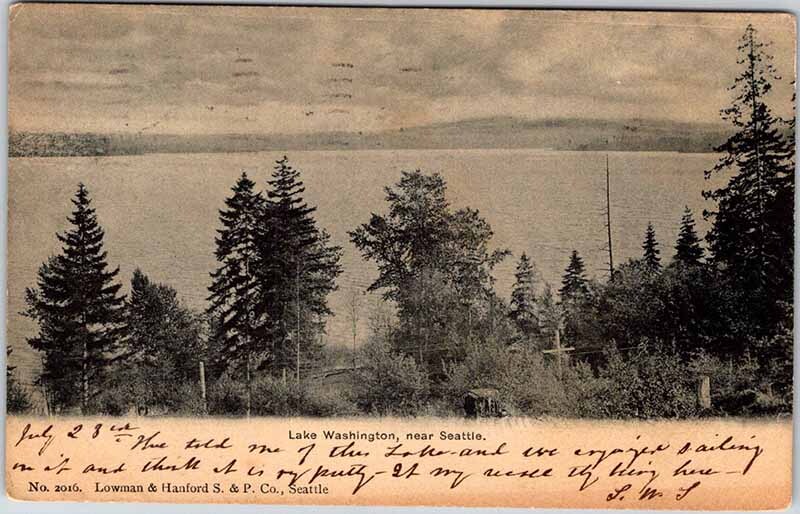 Lake Washington, near Seattle.
July 23rd You told me of this Lake - and we enjoyed sailing
on it and think it is very pretty - It my here -
No. 2016. Lowman & Hanford S. & P. Co., Seattle
S. W. S